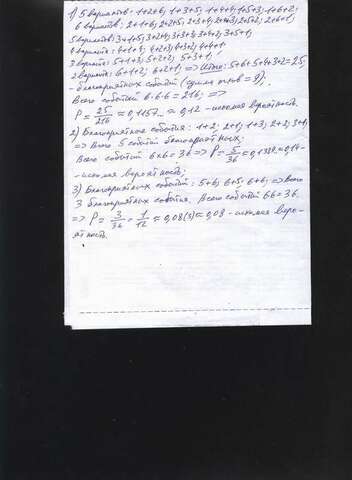 1) 5 вариантов: 1+2+6; 1+3+5; 1+4+4; 1+5+3; 1+6+2;
6 вариантов: 2+1+6; 2+2+5; 2+3+4; 2+4+3; 2+5+2; 2+6+1;
5 вариантов: 3+1+5; 3+2+4; 3+3+3; 3+4+2; 3+5+1;
4 варианта: 4+1+4; 4+2+3; 4+3+2; 4+4+1.
3 варианта: 5+1+3; 5+2+2; 5+3+1.
2 варианта: 6+1+2; 6+2+1; => Итого: 5+6+5+4+3+2=25;
- благоприятных событий (сумма = 9);
Всего событий 6·6·6 = 216; =>
P = 25/216 ≈ 0,1157... ≈ 0,12 - искомая вероятность.
2) Благоприятные события: 1+2; 2+1; 1+3; 2+2; 3+1;
=> Всего 5 событий благоприятных;
Всего событий 6×6 = 36 => P = 5/36 ≈ 0,1388 ≈ 0,14 -
- искомая вероятность.
3) Благоприятных событий: 5+6; 6+5; 6+6; => Всего
3 благоприятных события. Всего событий 6·6 = 36.
=> P = 3/36 = 1/12 = 0,08(3) ≈ 0,08 - искомая веро-
ятность.